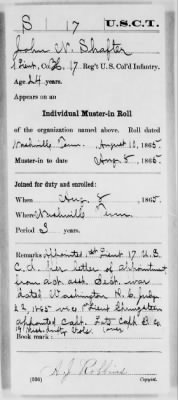 S | 17 | U.S.C.T.
John N. Shafter
1 Lieut, Co. H, 17 Reg't U.S. Col'd Infantry.
Age 24 years.
Appears on an
Individual Muster-in Roll
of the organization named above. Roll dated
Nashville Tenn. August 10, 1865.
Muster-in to date Aug 8, 1865.
Joined for duty and enrolled:
When Aug. 8, 1865.
Where Nashville Tenn.
Period 3 years.
Remarks: Appointed 1st Lieut 17 U.S.
C.I. per letter of appointment
from a.g.o. dept. war
dated Washington D.C. July
22, 1865 vice 1st Lieut
appointed Capt. Late Capt B Co
19 Mich. Vols. (over)
Book mark:
A. J. Robbins
(336) Copyist.